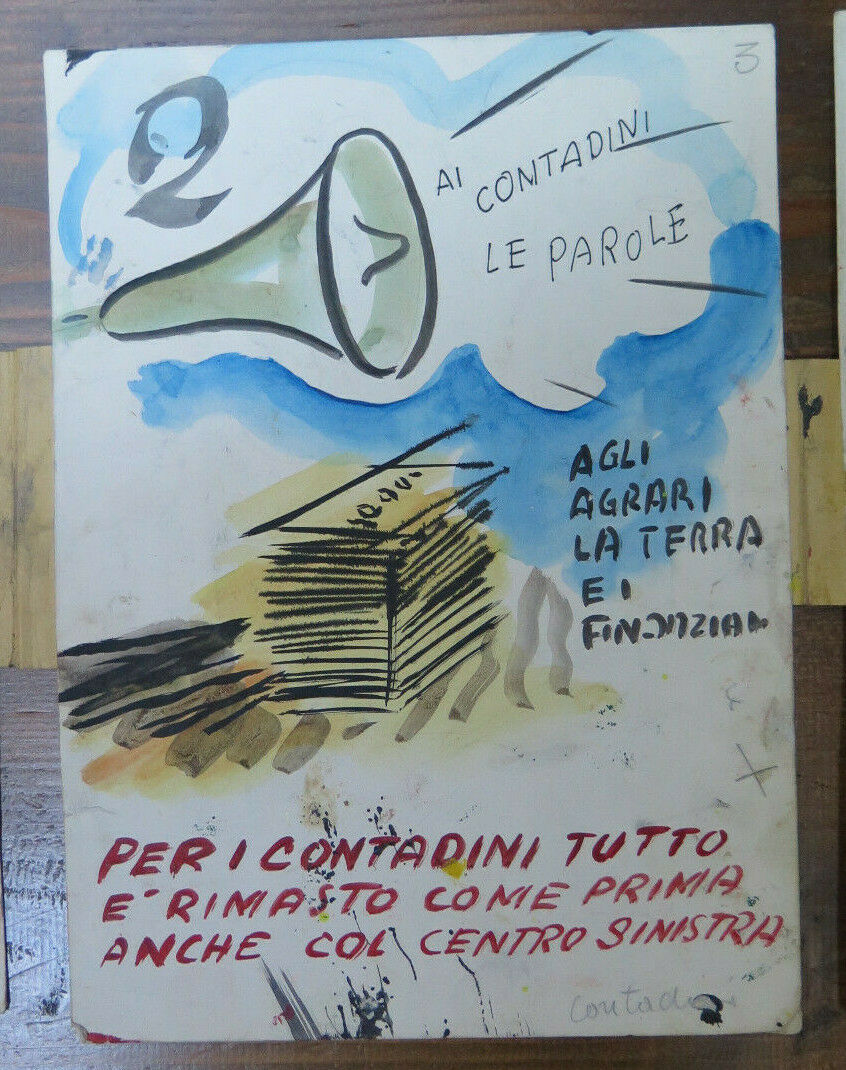 3
2
AI CONTADINI
LE PAROLE
AGLI
AGRARI
LA TERRA
E I
PER I CONTADINI TUTTO
E' RIMASTO COME PRIMA
ANCHE COL CENTRO SINISTRA